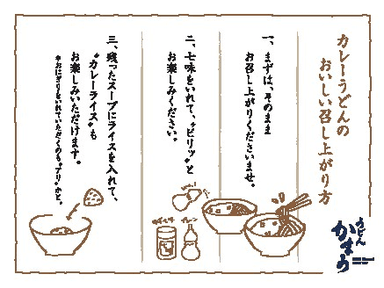 カレーうどんの
おいしい召し上がり方
一、まずは、そのまま
お召し上がりくださいませ。
二、七味をいれて、“ピリッ”と
お楽しみください。
三、残ったスープにライスを入れて、
“カレーライス”も
お楽しみいただけます。
*おにぎりをいれていただくのも“アリ”かと。
うどん